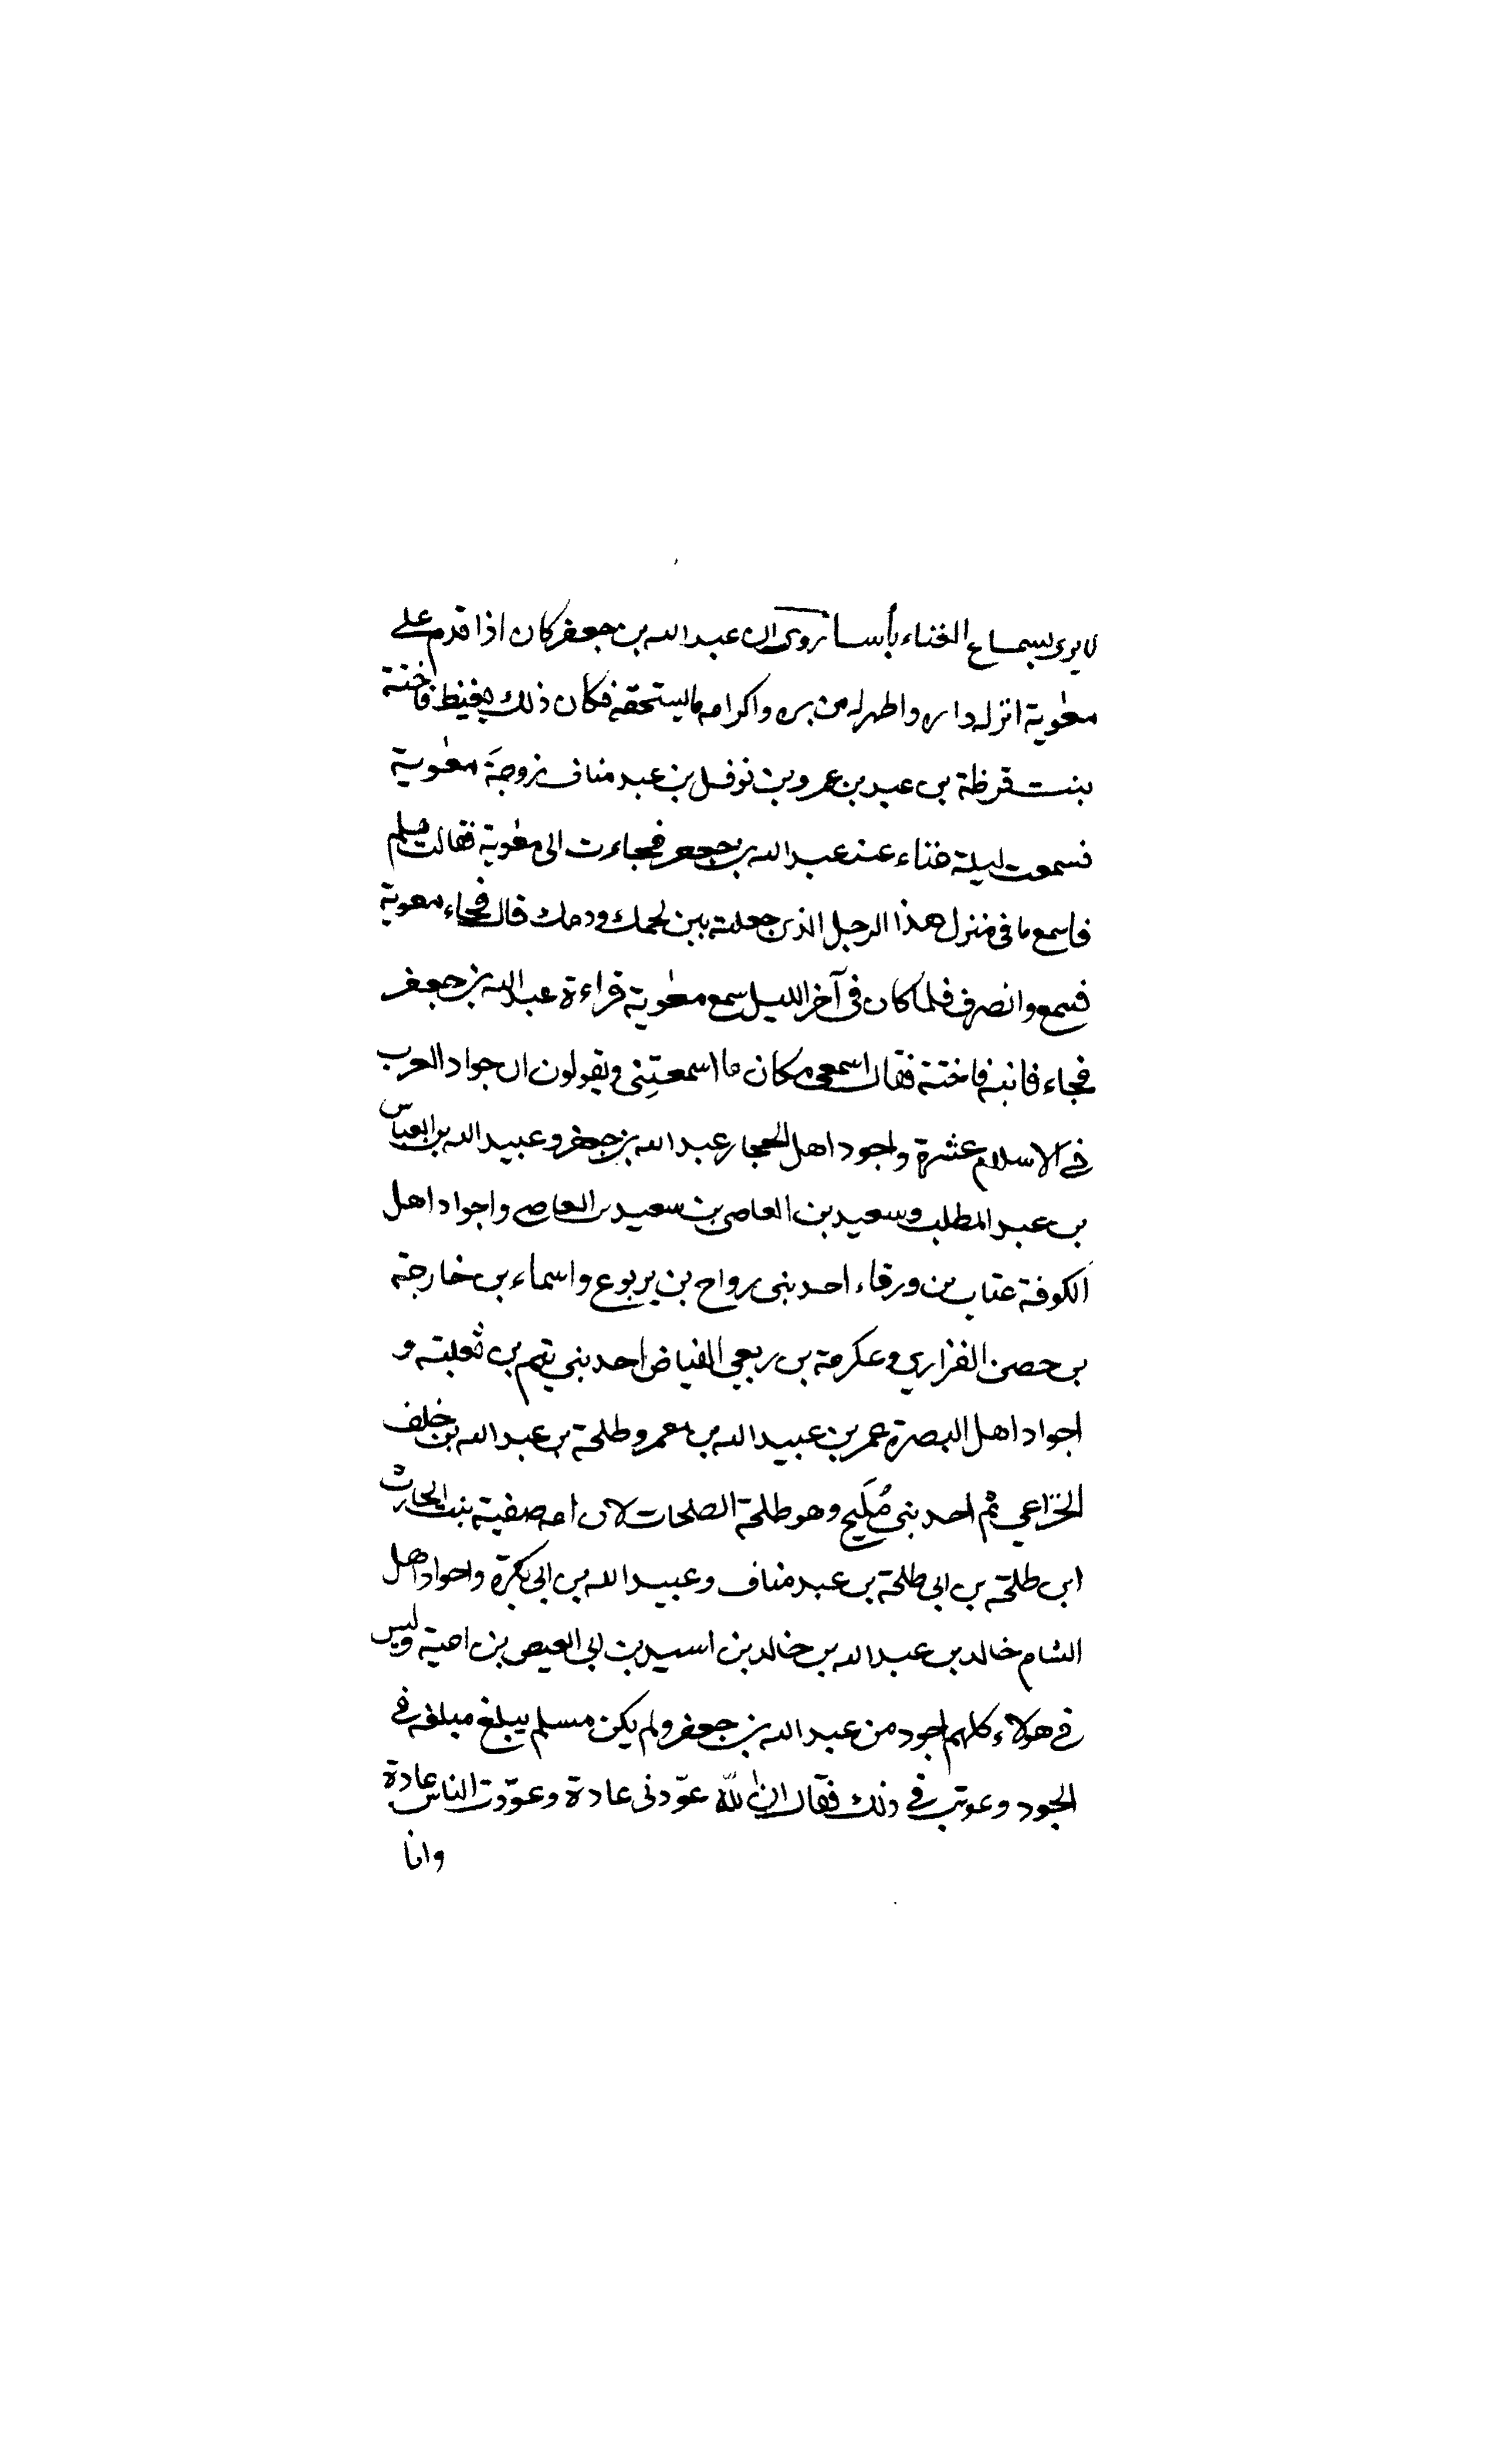 لا يرى بسماع الغناء بأسا روى ان عبد الله بن جعفر كان اذا قدم على
معوية انزله داره واظهر له من بره واكرامه ما يستحقه فكان ذلك يغيظ فاختة
بنت قرظة بن عبد بن عمرو بن نوفل بن عبد مناف زوجة معوية
فسمعت ليلة غناء عند عبد الله بن جعفر فجاءت الى معوية فقالت هلم
فاسمع ما فى منزل هذا الرجل الذى جعلته بين لحمك ودمك قال فجاء معوية
فسمع وانصرف فلما كان فى آخر الليل سمع معوية قراءة عبد الله بن جعفر
فجاء فانبه فاختة فقال اسمعى مكان ما اسمعتِنى ويقولون ان جواد العرب
فى الاسلام عشرة واجود اهل الحجاز عبد الله بن جعفر وعبيد الله بن العباس
بن عبد المطلب وسعيد بن العاصى بن سعيد بن العاصى واجواد اهل
الكوفة عتاب بن ورقاء احد بنى رواح بن يربوع واسماء بن خارجة
بن حصن الفزاري وعكرمة بن ربعي الفياض احد بني تيم بن ثعلبة و
اجواد اهل البصرة عمر بن عبيد الله بن معمر وطلحة بن عبد الله بن خلف
الخزاعي ثم احد بنى مُلَيح وهو طلحة الطلحات لان امه صفية بنت الحارث
ابن طلحة بن ابى طلحة بن عبد مناف وعبيد الله بن ابى بكرة واجواد اهل
الشام خالد بن عبد الله بن خالد بن اسيد بن ابى العيص بن امية وليس
فى هولاء كلهم اجود من عبد الله بن جعفر ولم يكن مسلم يبلغ مبلغه فى
الجود وعوتب فى ذلك فقال ان الله عوّدنى عادة وعوّدت الناس عادة
وانا